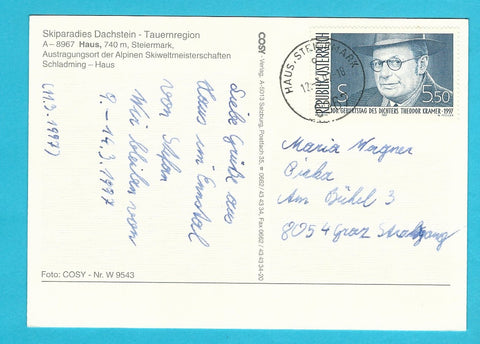 Skiparadies Dachstein - Tauernregion
A – 8967 Haus, 740 m, Steiermark,
Austragungsort der Alpinen Skiweltmeisterschaften
Schladming – Haus
Liebe Grüße aus
Haus im Ennstal
von Stefan
Wir bleiben von
9. – 14.3.1997
(11.3.1997)
Foto: COSY - Nr. W 9543
COSY - Verlag, A-5013 Salzburg, Postfach 35, 0662/43 43 34, Fax 0662/43 43 34-20
HAUS, STEIERMARK
REPUBLIK ÖSTERREICH
S 5,50
100. GEBURTSTAG DES DICHTERS THEODOR KRAMER · 1997
Maria Wagner
Am Bühel 3
8054 Graz Straßgang